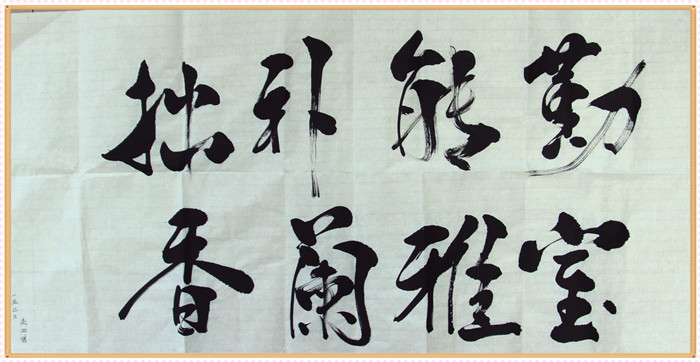 勤能补拙
室雅蘭香